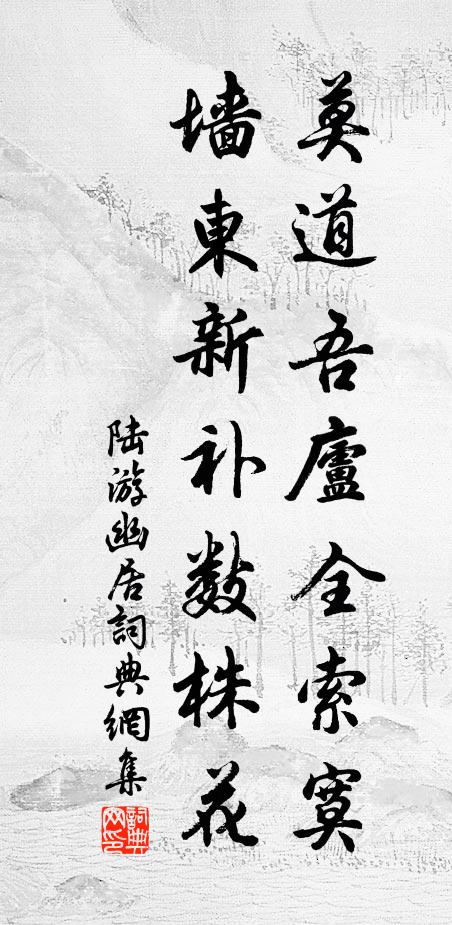 莫道吾廬全索寞
墙東新补數株花
陆游幽居詞典網集
詞典网印